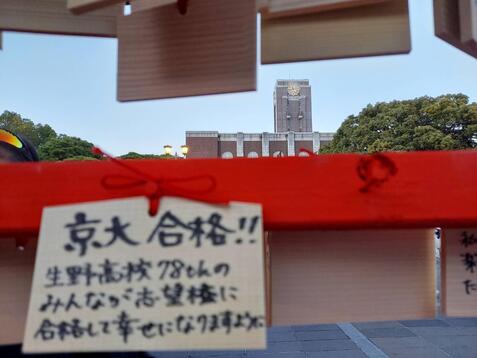 京大 合格!!
生野高校78thの
みんなが志望校に
合格して幸せになりますように